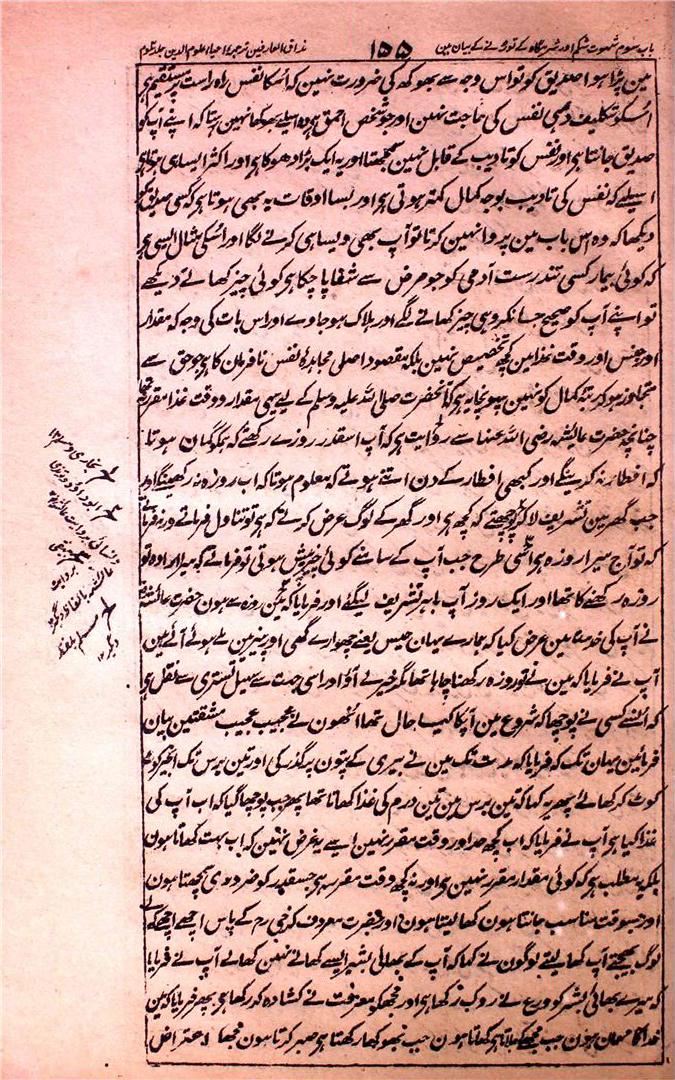 باب سوم شہوت شکم اور شرمگاہ کے توڑنے کے بیان مین ۱۵۵ مذاق العارفین ترجمہ احیاء علوم الدین جلد سوم
مین پڑا ہوا صدیق کو تو اس وجہ سے بھوکھ کی ضرورت نہین کہ اُسکا نفس راہ راست پر مستقیم ہی
اُسکو تکلیف دہی نفس کی حاجت نہین اور جو شخص احمق ہی وہ اسلیے بھوکھا نہین رہتا کہ اپنے آپکو
صدیق جانتا ہی اور نفس کو تادیب کے قابل نہین سمجھتا اور یہ ایک بڑا دھوکا ہی اور اکثر ایسا ہی ہوتا ہی
اسلیے کہ نفس کی تادیب بوجہ کمال کمتر ہوتی ہی اور بسا اوقات یہ بھی ہوتا ہی کہ کسی صدیق کو
دیکھا کہ وہ اس باب مین پروا نہین کرتا تو آپ بھی ویسا ہی کرنے لگا اور اُسکی مثال ایسی ہی
کہ کوئی بیمار کسی تندرست آدمی کو جو مرض سے شفا پا چکا ہی کوئی چیز کھاتے دیکھے
تو اپنے آپ کو صحیح جانکر وہی چیز کھانے لگے اور ہلاک ہو جاوے اور اس بات کی وجہ کہ مقدار
اور جنس اور وقت غذا مین کچھ تخصیص نہین بلکہ مقصود اصلی مجاہدۂ نفس نافرمان کا ہی جو حق سے
متجاوز ہو کر رتبۂ کمال کو نہین پہونچا یہ ہی کہ آنحضرت صلی اللہ علیہ وسلم کے لیے یہی مقدار و وقت غذا مقرر نہ تھا
چنانچہ حضرت عایشہ رضی اللہ عنہا سے روایت ہی کہ آپ اسقدر روزے رکھتے کہ ہمکو گمان ہوتا
کہ افطار نہ کرینگے اور کبھی افطار کے دن اتنے ہوتے کہ معلوم ہوتا کہ اب روزہ نہ رکھینگے اور
جب گھر مین تشریف لاکر پوچھتے کہ کچھ ہی اور گھر کے لوگ عرض کرتے کہ ہی تو تناول فرماتے ورنہ فرماتے
کہ تو آج میرا روزہ ہی اسی طرح جب آپ کے سامنے کوئی چیز پیش ہوتی تو فرماتے کہ میرا ارادہ تو
روزہ رکھنے کا تھا اور ایک روز آپ باہر تشریف لیگئے اور فرمایا کہ مین روزہ سے ہون حضرت عائشہ
نے آپ کی خدمت مین عرض کیا کہ ہمارے یہان حیس یعنے چھوارے گھی اور پنیر مین ملے ہوئے آئے ہین
آپ نے فرمایا کہ مین نے تو روزہ رکھنا چاہا تھا مگر خیر لے آؤ اور اسی جہت سے سہل تستری سے نقل ہی
کہ اُنسے کسی نے پوچھا کہ شروع مین آپکا کیا حال تھا اُنھون نے عجیب عجیب مشقتین بیان
فرمائین یہان تک کہ فرمایا کہ مدت تک مین نے بیری کے پتون پر گذر کی اور تین برس تک انجیر کو
کوٹ کر کھائے پھر یہ کہا کہ تین برس مین تین درم کی غذا کھاتا تھا پھر جب پوچھا گیا کہ اب آپ کی
غذا کیا ہی آپ نے فرمایا کہ اب کچھ حد اور وقت مقرر نہین اسے یہ غرض نہین کہ اب بہت کھاتا ہون
بلکہ یہ مطلب ہی کہ کوئی مقدار مقرر نہین ہی اور نہ کچھ وقت مقرر ہی جسقدر کو ضروری سمجھتا ہون
اور جسوقت مناسب جانتا ہون کھا لیتا ہون اور حضرت معروف کرخی رح کے پاس اچھے اچھے کھانے
لوگ بھیجتے آپ کھا لیتے لوگون نے کہا کہ آپ کے بھائی بشر ایسے کھانے نہین کھاتے آپ نے فرمایا
کہ میرے بھائی بشر کو ورع نے روک رکھا ہی اور مجھکو معرفت نے کشادہ کر رکھا ہی پھر فرمایا کہ مین
خدا کا مہمان ہون جب مجھے کھلاتا ہی کھاتا ہون جب بھوکھا رکھتا ہی صبر کرتا ہون مجھے اعتراض
بخاری و مسلم
ابو داؤد و ترمذی
بروایت
عائشہ بالفاظ دیگر
مسلم بلفظ
دیگر ۱۲